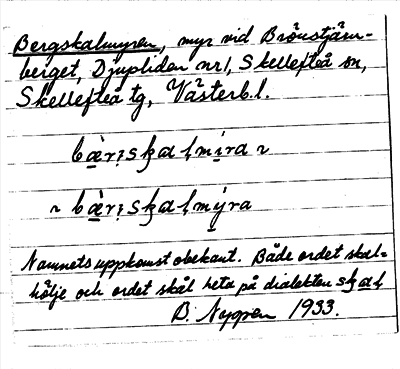 Bergskalmyren, myr vid Brönstjärn-
berget, Djupliden nr 1, Skellefteå sn,
Skellefteå tg, Västerb.l.
bær:skalmira ~
~ bær:skalmýra
Namnets uppkomst obekant. Både ordet skal=
hölje och ordet skål heta på dialekten skal
B. Nygren 1933.